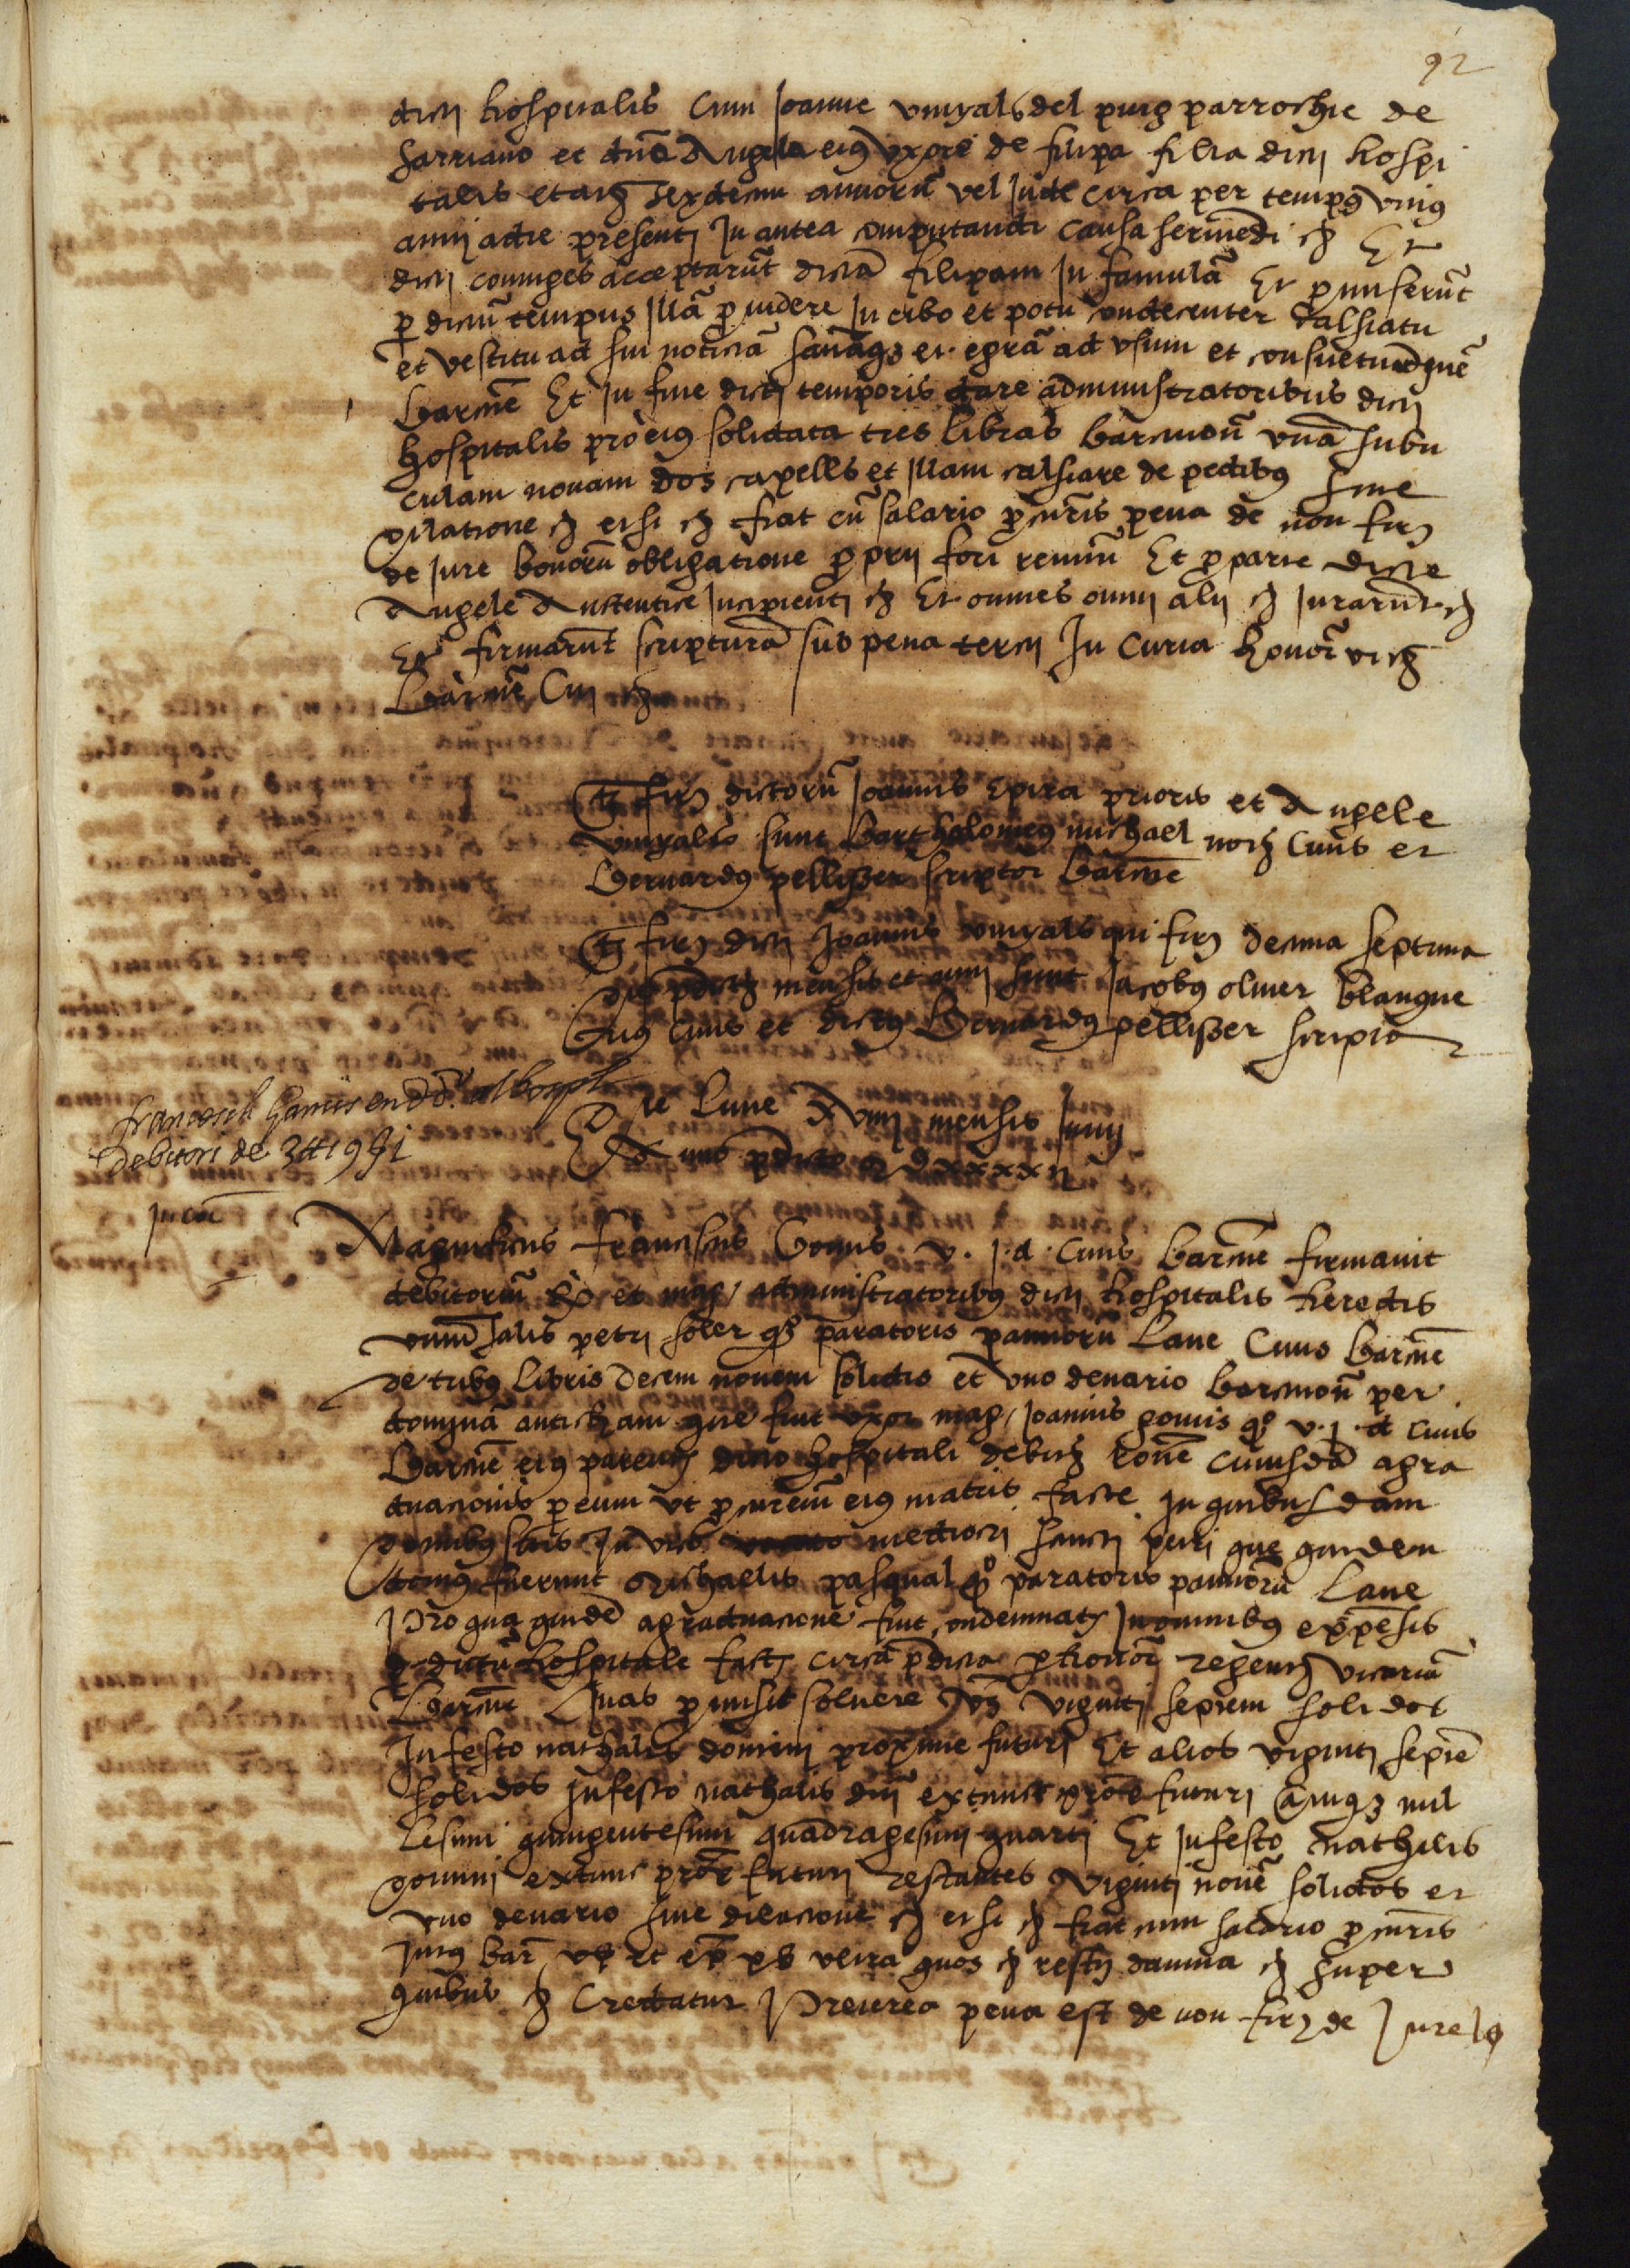 92
dicti hospitalis cum Joanne vinyals del puig parrochie de
Sarriano et dña Angela eius vxore de filipa filia dicti hospi
talis etatis sexdecim annorũ vel inde circa per tempus vnius
anni a die presenti in antea computandi causa serviendi etc Et
dicti coniuges acceptarũt dictã filipam in famulã Et promiserũt
per dictũ tempus illã prouidere in cibo et potu condecenter calsiatu
et vestitu ad sui noticiã sanãqz et egrã ad vsum et consuetudinẽ
barcnẽ Et in fine dicti temporis dare administratoribus dicti
hospitalis pro eius solidata tres libras barcinoñ vnã subu
culam nouam dos capells et illam calsiare de pedibus sine
dilatione etc et si etc fiat cũ salario procuris pena de non firmando
de jure bonorũ obligatione proprii fori renunciatione Et pro parte dicte
Angele Autentice incipienti etc Et omnes omnii alii etc jurarũt etc
Et firmarũt scripturã sub pena tercii in curia honor vicarii
barcnẽ Cui etc
Testes firme dictorũ Joannis Spira prioris et Angele
vinyals sunt Bartholomeus michael not ciuis et
Bernardus pellisser scriptor barcne
Testes firme dicti Joannis vinyals qui firmauit decima septima
die predicti mensis et anni sunt Jacobus oliuer blanque
rius ciuis et dictus Bernardus pellisser scriptor
francesch Gamis en deu. al hospl
debitori de 3 ℔ 19 s i
Die Lune xviiii mensis Junii
Anno predicto M D xxxxii
Magnificus franciscus Gomis v. j. d. ciuis barcnẽ firmauit
debitoriũ Rdo et magcis administratoribus dicti hospitalis heredis
vniuersalis petri soler qo paratoris pannorũ lane ciuis barcnẽ
de tribus libris decem nouem solidis et vno denario barcinoñ per
dominã antigham que fuit vxor magci Joannis gomis qo v. j. d ciuis
barcnẽ eius parentis dicto hospitali debitis racione cuiusdã agra
duacionis per eum vt procuratorem eius matris facte in quibusdam
domibus sitis in vico mediocri sancti petri que quidem
domus fuerunt Michaelis pasqual qo paratoris pannorũ lane
Pro qua quidẽ agraduacione fuit condemnatus in omnibus expẽsis
per dictũ hospitale factis circa predicta per honor regentem vicariã
barcne Quas promisit soluere viginti septem solidos
in festo nathalis domini proxime futuri Et alios viginti septẽ
solidos in festo nathalis dñi extunc proxie futuri anniqz mil
lesimi quingentesimi quadragesimi quarti Et in festo nathalis
domini extunc proxe futuri restantes viginti nouẽ solidos et
vno denario sine dilacione etc et si etc fiat cum salario procuris
intus bar vs et ex xs vltra quos etc restituet damna etc super
quibus etc credatur Preterea pena est de non firmando de jure